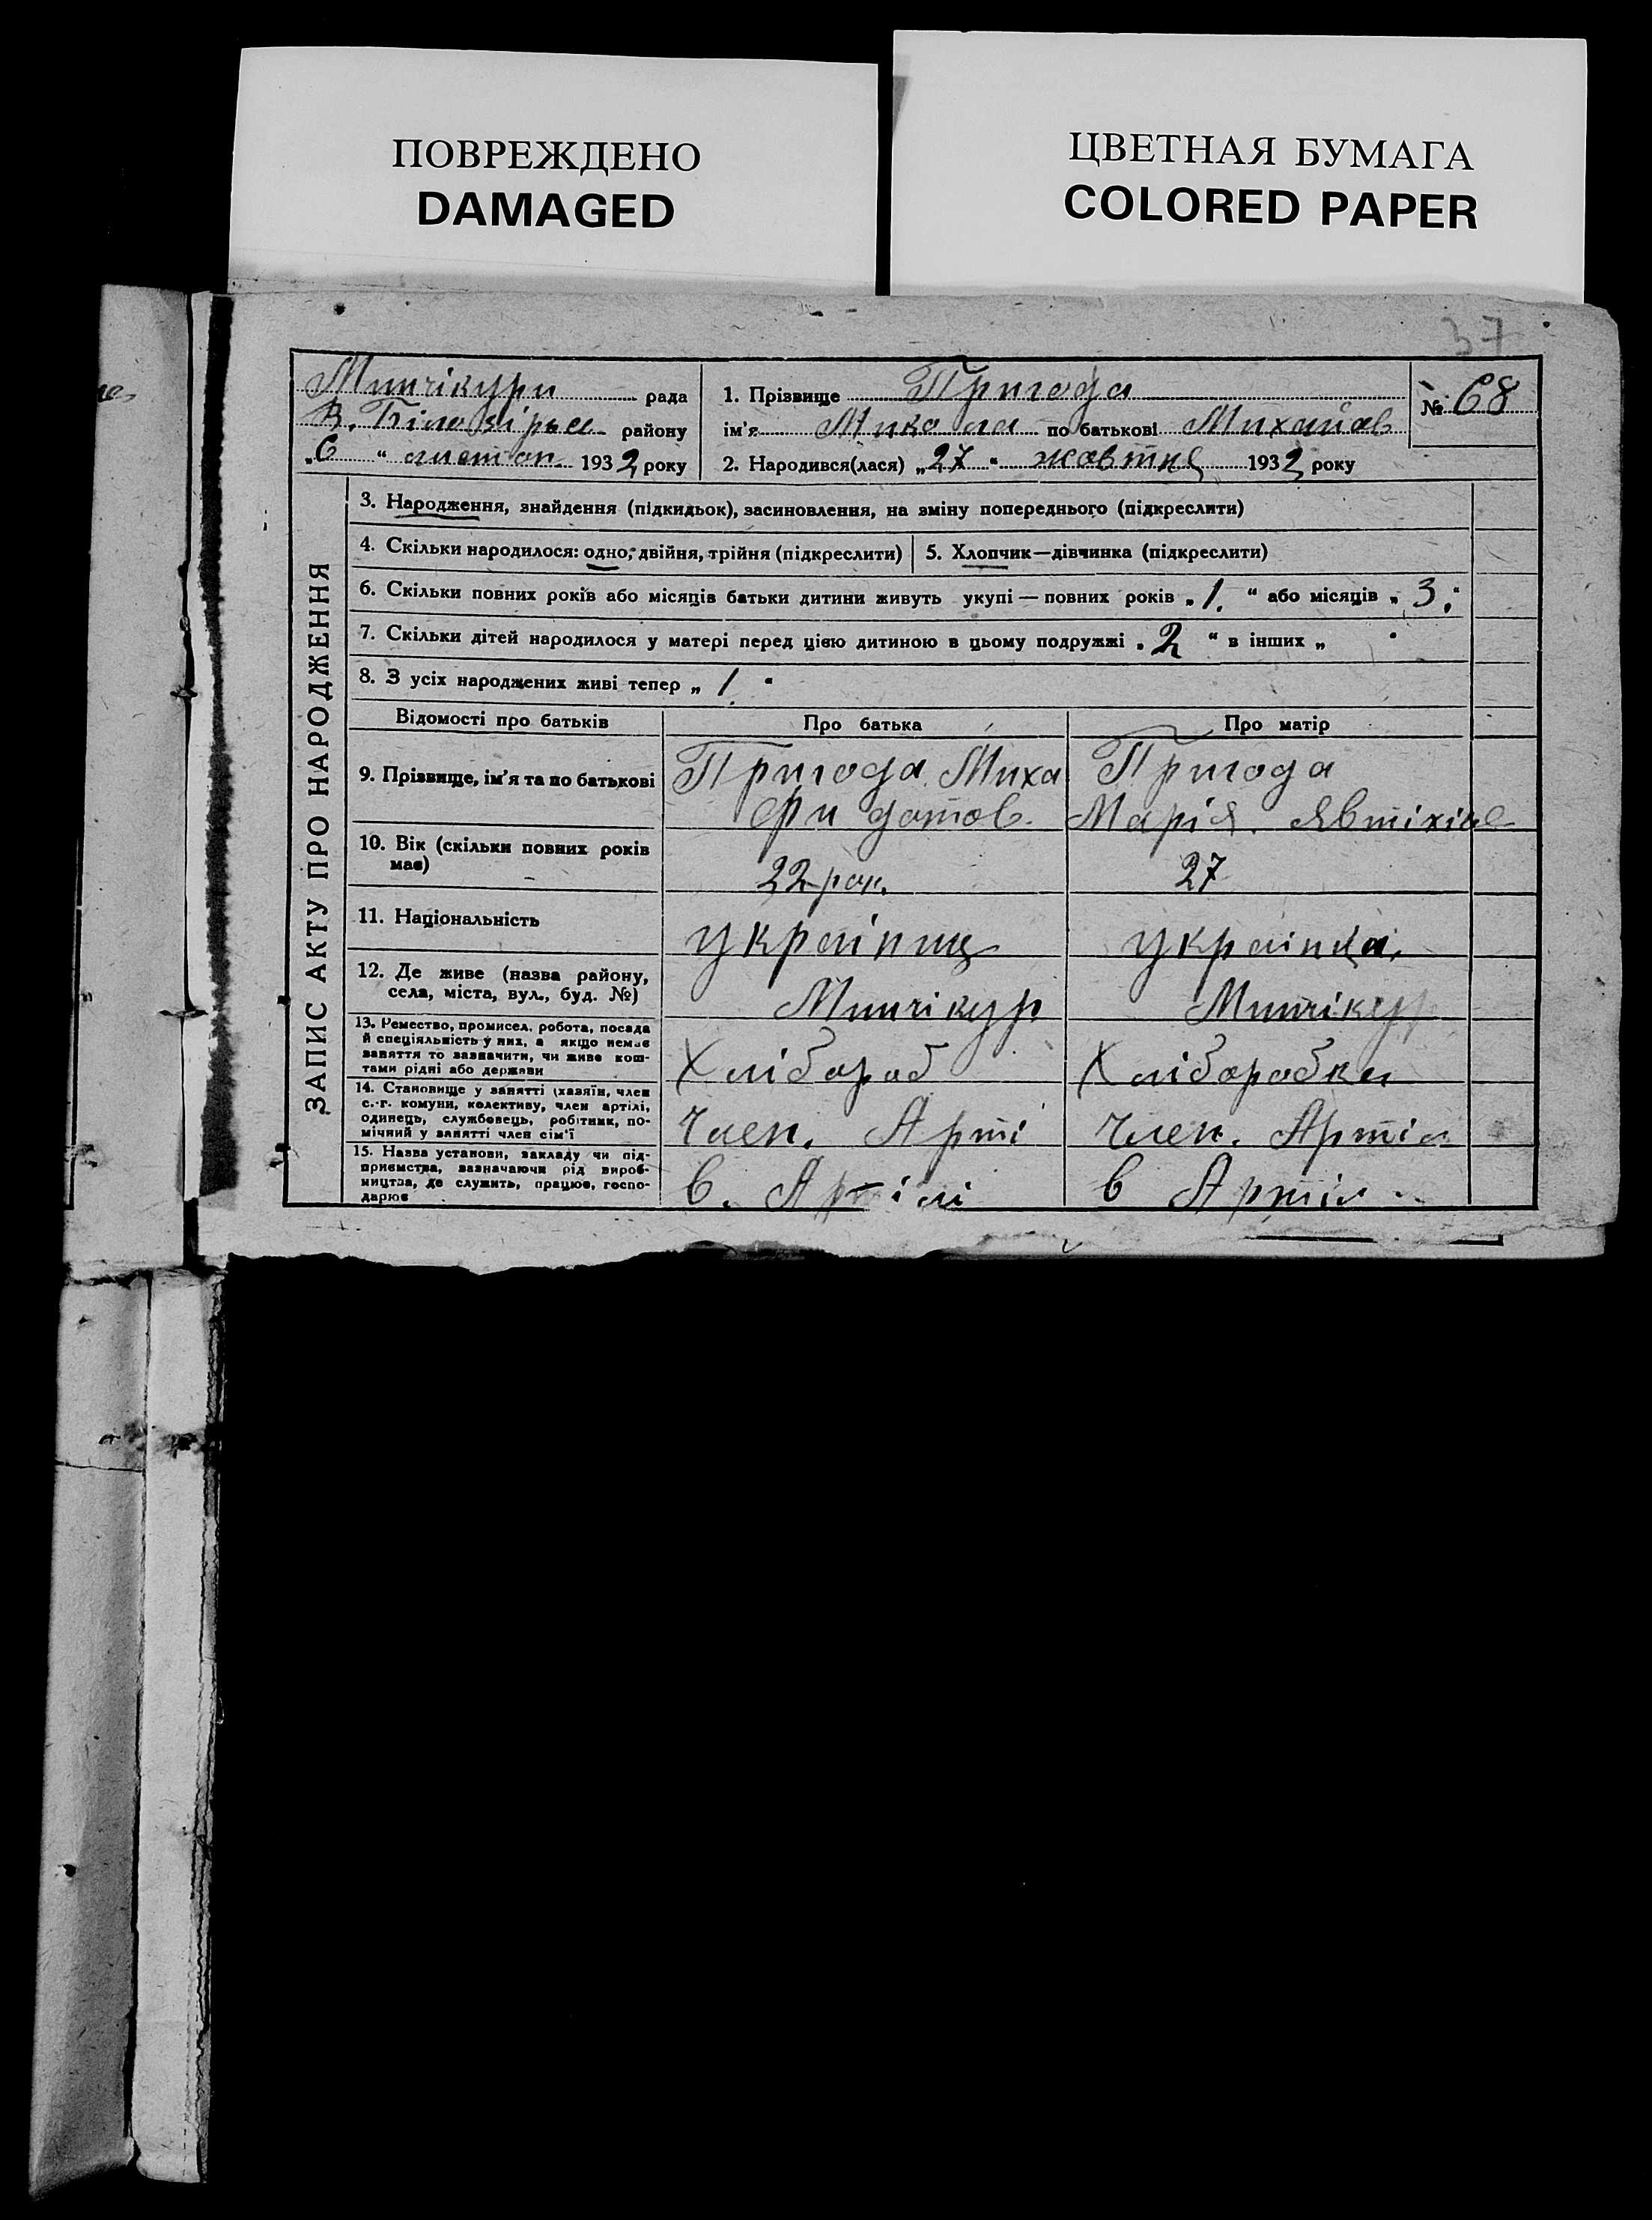 ПОВРЕЖДЕНО
DAMAGED
ЦВЕТНАЯ БУМАГА
COLORED PAPER
37
Минчікури рада
В. Білозірье району
„6“ листоп. 1932 року
1. Прізвище Пригода
ім'я Микола по батькові Михайлов
2. Народився(лася) „27“ жовтня 1932 року
№ 68
ЗАПИС АКТУ ПРО НАРОДЖЕННЯ
3. Народження, знайдення (підкидьок), засиновлення, на зміну попереднього (підкреслити)
4. Скільки народилося: одно, двійня, трійня (підкреслити)
5. Хлопчик—дівчинка (підкреслити)
6. Скільки повних років або місяців батьки дитини живуть укупі — повних років „1.“ або місяців „3.“
7. Скільки дітей народилося у матері перед цією дитиною в цьому подружжі „2“ в інших „ “
8. З усіх народжених живі тепер „1.“
Відомості про батьків
Про батька
Про матір
9. Прізвище, ім'я та по батькові
Пригода Миха
Пригода
Марія.
10. Вік (скільки повних років має)
22 рок.
27
11. Національність
українец
українка.
12. Де живе (назва району, села, міста, вул., буд. №)
Минчікур
Минчікур
13. Ремество, промисел, робота, посада й спеціяльність у них, а якщо немає заняття то зазначити, чи живе коштами рідні або держави
Хлібороб
Хлібаробка
14. Становище у занятті (хазяїн, член с.-г. комуни, колективу, член артілі, одинець, службовець, робітник, помічний у занятті член сім'ї
Член. Арті
Член. Артіл
15. Назва установи, закладу чи підприємства, зазначаючи рід виробництва, де служить, працює, господарює
в. Артілі
в Артіл